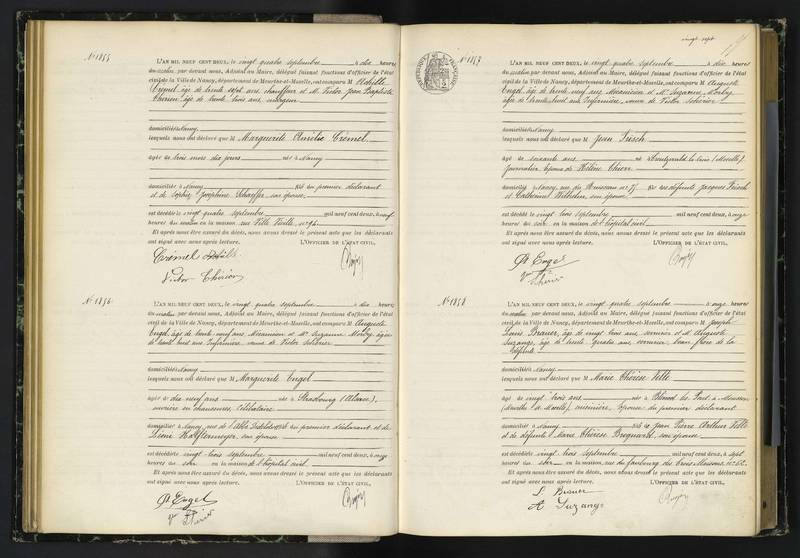 N° 1855
L'AN MIL NEUF CENT DEUX, le vingt quatre septembre à dix heures
du matin par devant nous, Adjoint au Maire, délégué faisant fonctions d'officier de l'état
civil de la Ville de Nancy, département de Meurthe-et-Moselle, ont comparu M Achille
Crémel âgé de trente sept ans, chauffeur et M. Victor Jean Baptiste
Thirion âgé de trente trois ans
domiciliés à Nancy
lesquels nous ont déclaré que M Marguerite Amélie Crémel
âgée de trois mois dix jours née à Nancy
domiciliée à Nancy fille du premier déclarant
et de Sophie Joséphine Schaffer, son épouse
est décédée le vingt quatre septembre mil neuf cent deux, à neuf
heures du matin en maison, rue Ville Vieille, n° 94
Et après nous être assuré du décès, nous avons dressé le présent acte que les déclarants
ont signé avec nous après lecture. L'OFFICIER DE L'ÉTAT CIVIL,
Crémel Achille
Victor Thirion
N° 1856
L'AN MIL NEUF CENT DEUX, le vingt quatre septembre à dix heures
du matin par devant nous, Adjoint au Maire, délégué faisant fonctions d'officier de l'état
civil de la Ville de Nancy, département de Meurthe-et-Moselle, ont comparu M Auguste
Engel, âgé de trente neuf ans, Mécanicien et Me Suzanne Morby âgée
de trente huit ans Infirmière, veuve de Victor
domiciliés à Nancy
lesquels nous ont déclaré que M Marguerite Engel
âgée de dix neuf ans née à Strasbourg (Alsace),
ouvrière en chaussures, célibataire
domiciliée à Nancy, rue de l'Abbé fille du premier déclarant et de
son épouse
est décédée le vingt trois septembre mil neuf cent deux, à onze
heures du soir en la maison de l'hôpital civil
Et après nous être assuré du décès, nous avons dressé le présent acte que les déclarants
ont signé avec nous après lecture. L'OFFICIER DE L'ÉTAT CIVIL,
Engel
vingt sept
N° 1857
RÉPUBLIQUE FRANÇAISE
L'AN MIL NEUF CENT DEUX, le vingt quatre septembre à dix heures
du matin par devant nous, Adjoint au Maire, délégué faisant fonctions d'officier de l'état
civil de la Ville de Nancy, département de Meurthe-et-Moselle, ont comparu M Auguste
Engel, âgé de trente neuf ans Mécanicien et Me Suzanne Morby
âgée de trente huit ans Infirmière, veuve de Victor
domiciliés à Nancy
lesquels nous ont déclaré que M Jean Frisch
âgé de soixante ans né à (Moselle)
Journalier époux de Hélène Thierr
domicilié à Nancy, rue du Ruisseau n° 17 fils de défunts Jacques Frisch
et Catherine Wilhelm, son épouse
est décédé le vingt trois septembre mil neuf cent deux, à onze
heures du soir en la maison de l'hôpital civil
Et après nous être assuré du décès, nous avons dressé le présent acte que les déclarants
ont signé avec nous après lecture. L'OFFICIER DE L'ÉTAT CIVIL,
Engel
N° 1858
L'AN MIL NEUF CENT DEUX, le vingt quatre septembre à onze heures
du matin par devant nous, Adjoint au Maire, délégué faisant fonctions d'officier de l'état
civil de la Ville de Nancy, département de Meurthe-et-Moselle, ont comparu M Joseph
Louis Brauer, âgé de vingt trois ans, serrurier et M. Auguste
Suzange, âgé de trente quatre ans, serrurier, beau frère de la
défunte
domiciliés à Nancy
lesquels nous ont déclaré que M Marie Thérèse Velle
âgée de vingt trois ans née à Blénod les Pont à Mousson
(Meurthe & Moselle), épouse du premier déclarant
domiciliée à Nancy fille de Jean Pierre Arthur Velle
et de défunte Marie Thérèse son épouse
est décédée le vingt trois septembre mil neuf cent deux, à sept
heures du soir en la maison, rue du faubourg des Trois Maisons, n° 62
Et après nous être assuré du décès, nous avons dressé le présent acte que les déclarants
ont signé avec nous après lecture. L'OFFICIER DE L'ÉTAT CIVIL,
L. Brauer
A Suzange